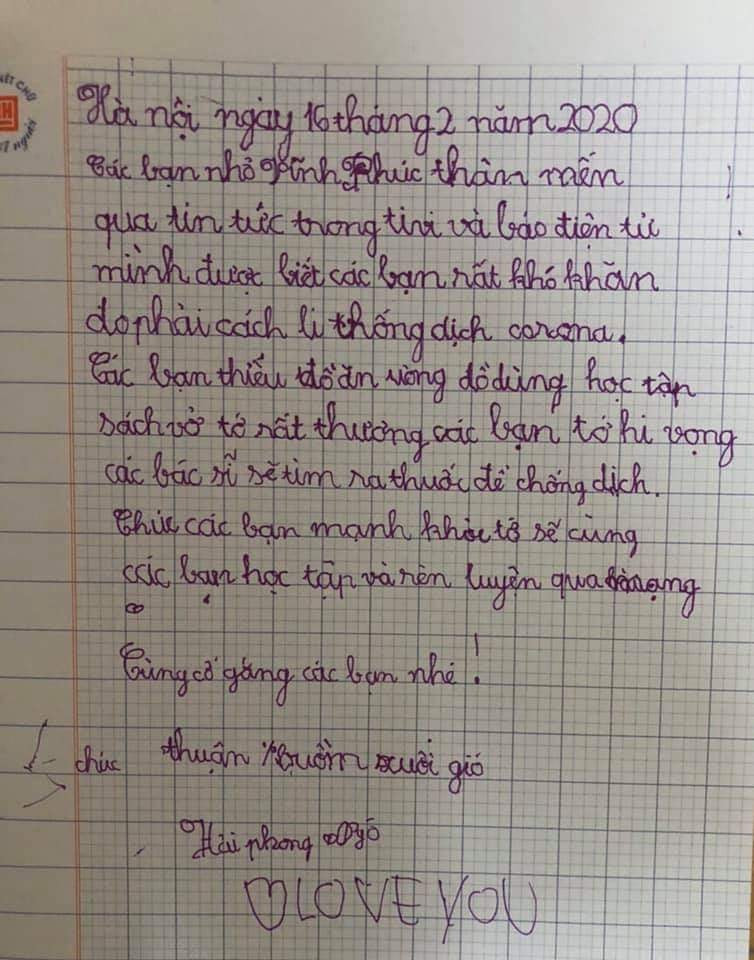 Hà nội ngày 16 tháng 2 năm 2020
Các bạn nhỏ Vĩnh Phúc thân mến
qua tin tức trong tivi và báo điện tử
mình được biết các bạn rất khó khăn
do phải cách li thống dịch corona.
Các bạn thiếu đồ ăn uống đồ dùng học tập
sách vở tớ rất thương các bạn tớ hi vọng
các bác sĩ sẽ tìm ra thuốc để chống dịch.
Chúc các bạn mạnh khỏe tớ sẽ cùng
các bạn học tập và rèn luyện qua mạng
Cùng cố gắng các bạn nhé!
chúc thuận buồm xuôi gió
Hải phong
LOVE YOU